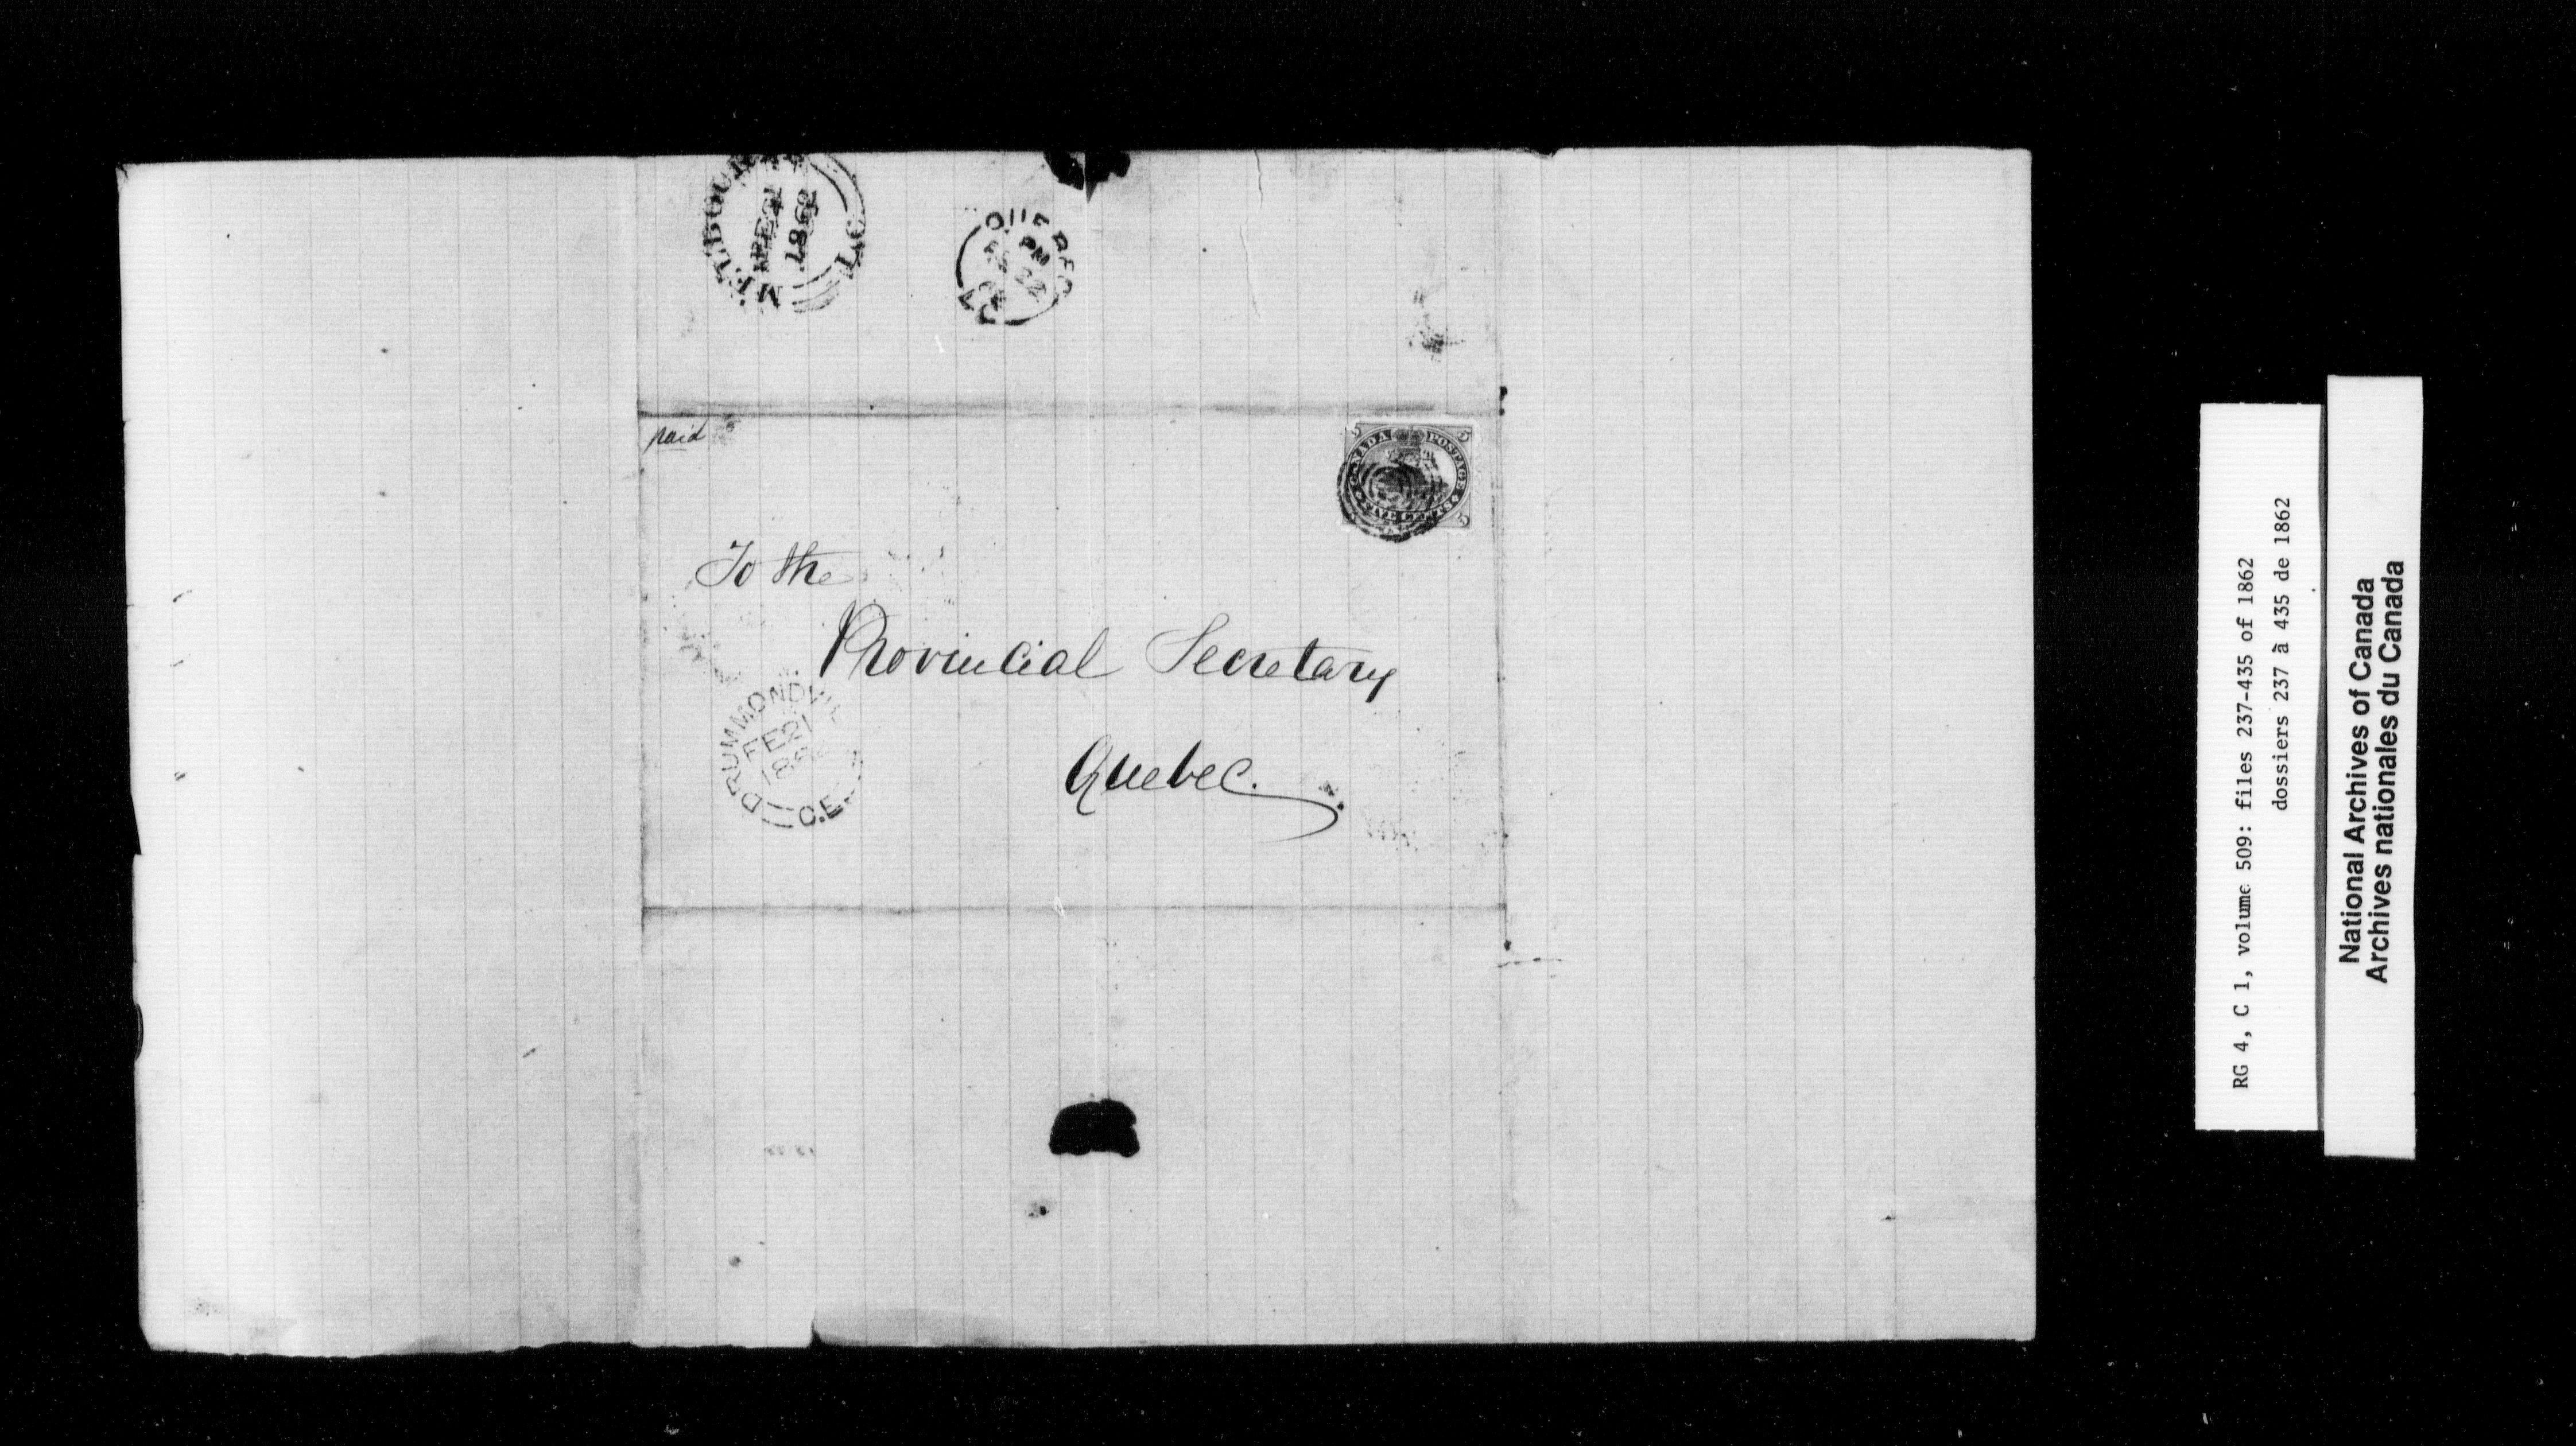 QUEBEC
PM
22
paid
CANADA POSTAGE
FIVE CENTS
5
5
5
To the
Provincial Secretary
Quebec.
DRUMMONDVIL
FE 21
C.E.
RG 4, C 1, volume 509: files 237-435 of 1862
dossiers 237 à 435 de 1862
National Archives of Canada
Archives nationales du Canada